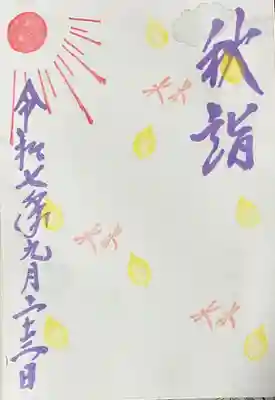 秋詣
令和七年九月二十二日